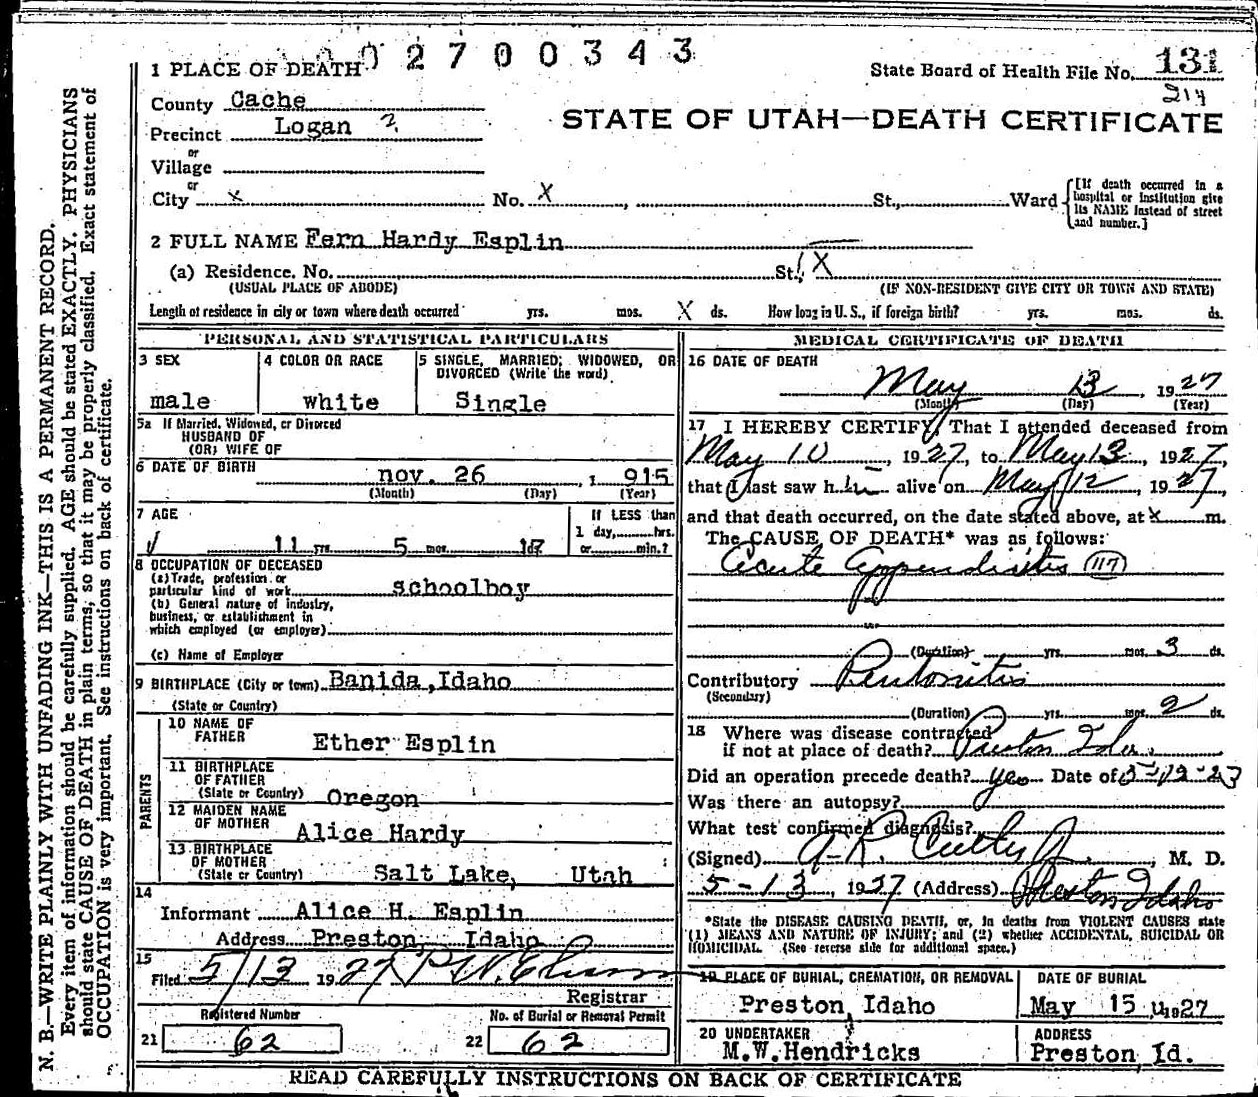 002700343
1 PLACE OF DEATH
State Board of Health File No. 131
214
County Cache
STATE OF UTAH—DEATH CERTIFICATE
Precinct Logan 2
or
Village
or
City x No. X St., Ward {[If death occurred in a hospital or institution give its NAME instead of street and number.]
2 FULL NAME Fern Hardy Esplin
(a) Residence. No. St. X
(USUAL PLACE OF ABODE) (IF NON-RESIDENT GIVE CITY OR TOWN AND STATE)
Length of residence in city or town where death occurred yrs. mos. X ds. How long in U. S., if foreign birth? yrs. mos. ds.
PERSONAL AND STATISTICAL PARTICULARS
3 SEX
male
4 COLOR OR RACE
white
5 SINGLE, MARRIED, WIDOWED, OR
DIVORCED (Write the word)
Single
5a If Married, Widowed, or Divorced
HUSBAND OF
(OR) WIFE OF
6 DATE OF BIRTH nov. 26 , 1 915
(Month) (Day) (Year)
7 AGE
11 yrs. 5 mos. 17
If LESS than
1 day, hrs.
or min.?
8 OCCUPATION OF DECEASED
(a) Trade, profession or
particular kind of work schoolboy
(b) General nature of industry,
business, or establishment in
which employed (or employer)
(c) Name of Employer
9 BIRTHPLACE (City or town) Banida, Idaho
(State or Country)
PARENTS
10 NAME OF
FATHER Ether Esplin
11 BIRTHPLACE
OF FATHER
(State or Country) Oregon
12 MAIDEN NAME
OF MOTHER Alice Hardy
13 BIRTHPLACE
OF MOTHER
(State or Country) Salt Lake, Utah
14
Informant Alice H. Esplin
Address Preston, Idaho
15
Filed 5/13 1927
Registrar
Registered Number
21 62
No. of Burial or Removal Permit
22 62
MEDICAL CERTIFICATE OF DEATH
16 DATE OF DEATH
May 13, 1927
(Month) (Day) (Year)
17 I HEREBY CERTIFY, That I attended deceased from
May 10, 1927, to May 13, 1927,
that I last saw h im alive on May 12, 1927,
and that death occurred, on the date stated above, at x m.
The CAUSE OF DEATH* was as follows:
Acute Appendicitis (117)
(Duration) yrs. mos. 3 ds.
Contributory Peritonitis
(Secondary)
(Duration) yrs. mos. 2 ds.
18 Where was disease contracted
if not at place of death? Preston Ida.
Did an operation precede death? yes Date of 5-12-27
Was there an autopsy?
What test confirmed diagnosis?
(Signed) A. R. Cutler Jr., M. D.
5-13, 1927 (Address) Preston, Idaho
*State the DISEASE CAUSING DEATH, or, in deaths from VIOLENT CAUSES state
(1) MEANS AND NATURE OF INJURY; and (2) whether ACCIDENTAL, SUICIDAL OR
HOMICIDAL. (See reverse side for additional space.)
19 PLACE OF BURIAL, CREMATION, OR REMOVAL
Preston, Idaho
DATE OF BURIAL
May 15 1927
20 UNDERTAKER
M.W.Hendricks
ADDRESS
Preston, Id.
READ CAREFULLY INSTRUCTIONS ON BACK OF CERTIFICATE
N. B.—WRITE PLAINLY WITH UNFADING INK—THIS IS A PERMANENT RECORD.
Every item of information should be carefully supplied. AGE should be stated EXACTLY. PHYSICIANS
should state CAUSE OF DEATH in plain terms, so that it may be properly classified. Exact statement of
OCCUPATION is very important. See instructions on back of certificate.